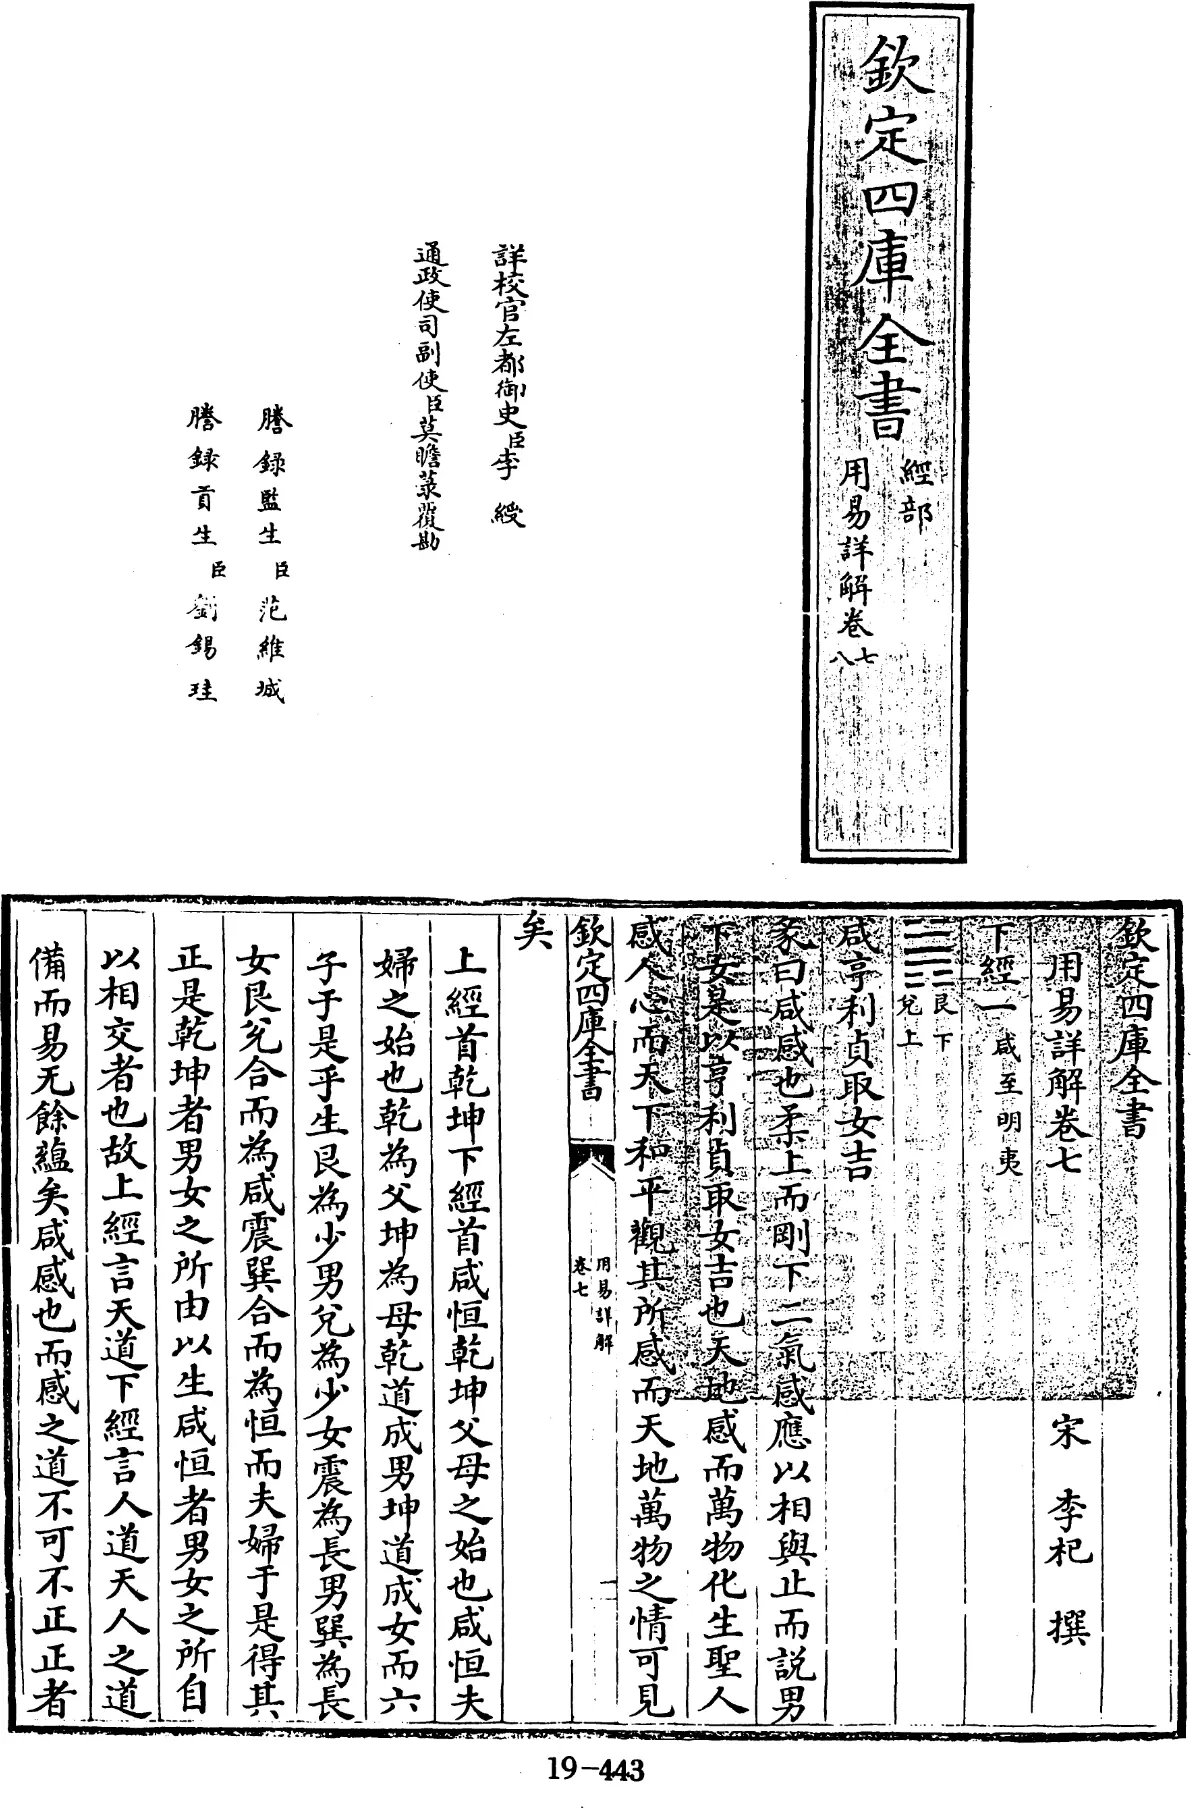 欽定四庫全書
經部
用易詳解卷七
八
詳校官左都御史臣李綬
通政使司副使臣莫瞻菉覆勘
謄録監生臣范維城
謄録貢生臣劉錫珪
欽定四庫全書
用易詳解卷七
宋 李杞 撰
下經一 咸至明夷
艮下
兌上
咸亨利貞取女吉
彖曰咸感也柔上而剛下二氣感應以相與止而説男
下女是以亨利貞取女吉也天地感而萬物化生聖人
感人心而天下和平觀其所感而天地萬物之情可見
欽定四庫全書
用易詳解
卷七
一
矣
上經首乾坤下經首咸恒乾坤父母之始也咸恒夫
婦之始也乾為父坤為母乾道成男坤道成女而六
子于是乎生艮為少男兌為少女震為長男巽為長
女艮兌合而為咸震巽合而為恒而夫婦于是得其
正是乾坤者男女之所由以生咸恒者男女之所自
以相交者也故上經言天道下經言人道天人之道
備而易无餘藴矣咸感也而感之道不可不正正者
19-443